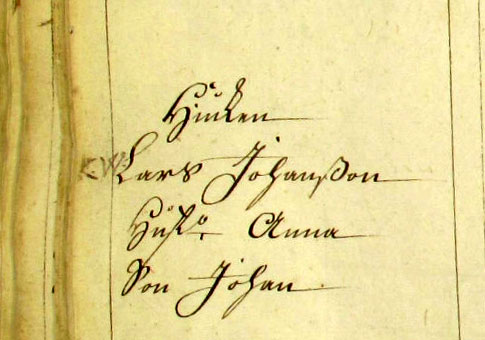 Hinken
K.W. Lars Johanßon
Hust:o Anna
Son Johan